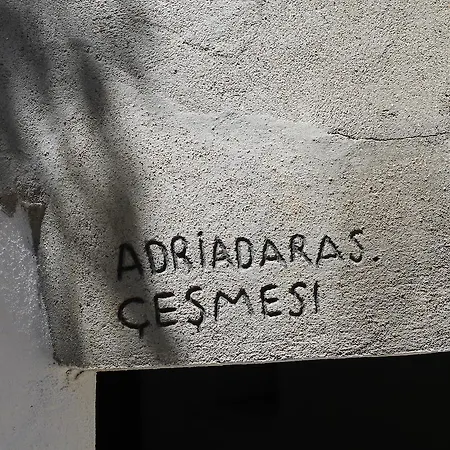 ADRİADARAS.
ÇEŞMESI